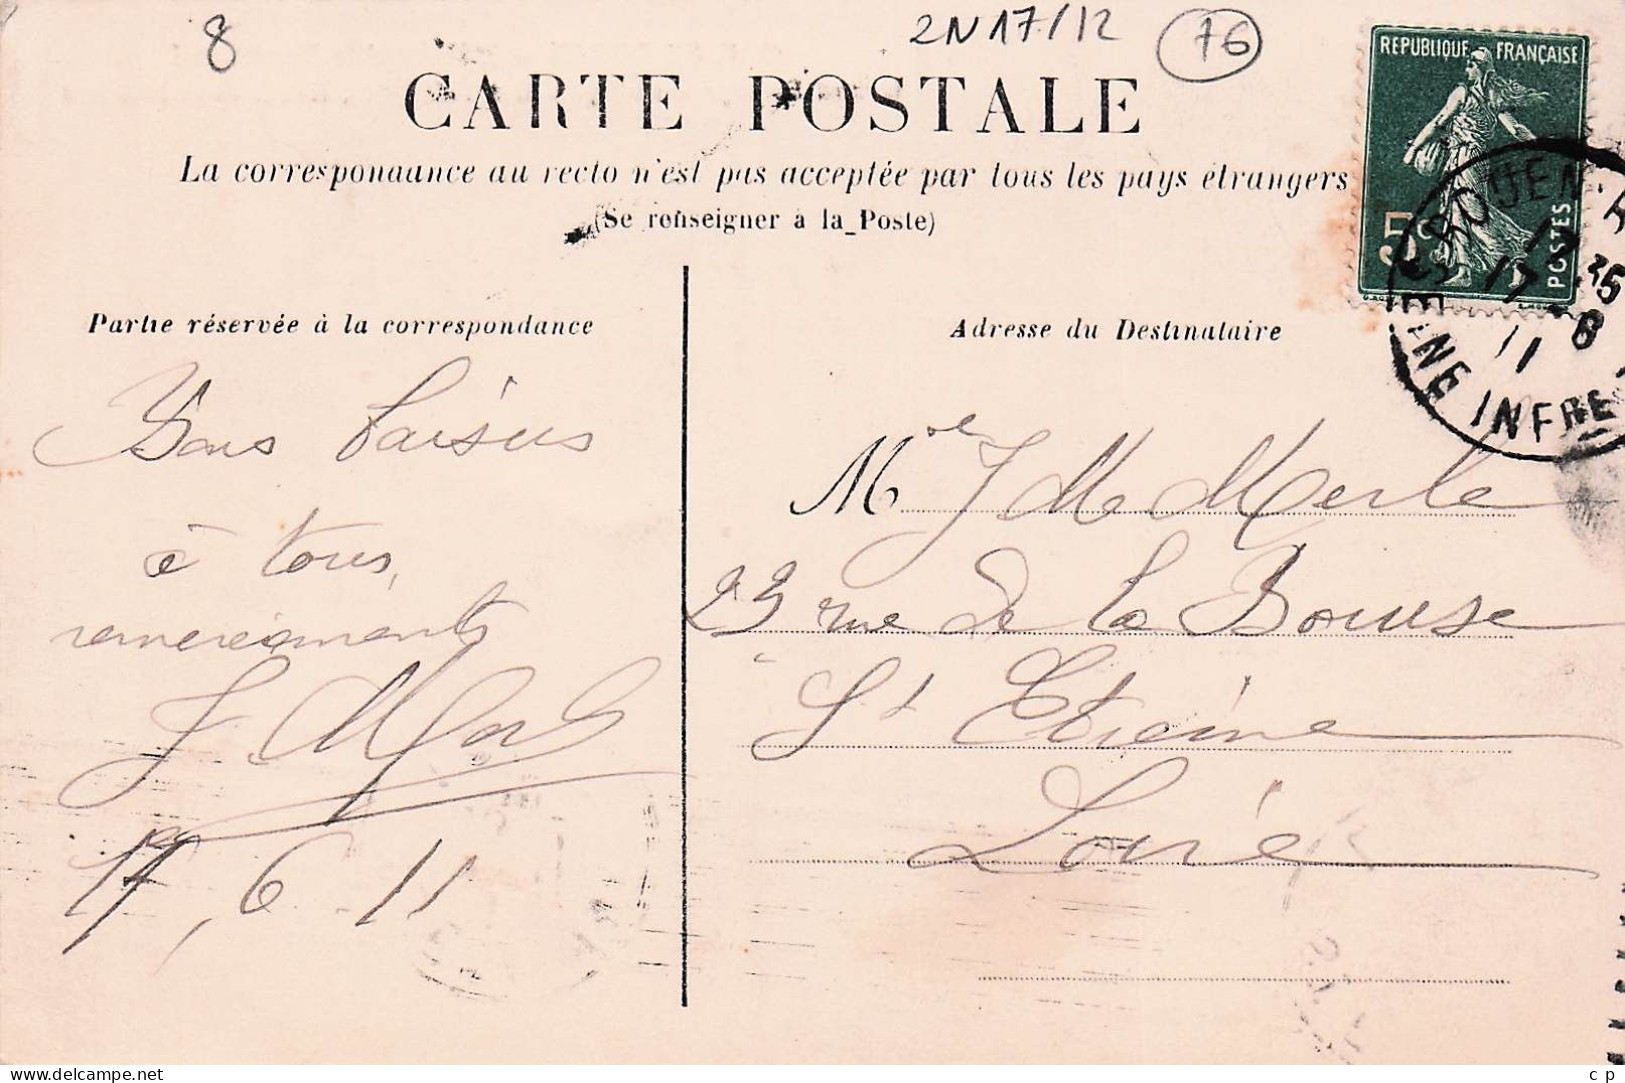 8
2N17/12
76
CARTE POSTALE
La correspondance au recto n'est pas acceptée par tous les pays étrangers
(Se renseigner à la Poste)
REPUBLIQUE FRANÇAISE
5c
POSTES
ROUEN
17 35
17 6
11
INE INFRE
Partie réservée à la correspondance
Bons baisers
à tous,
remerciements
J.
17, 6 11
Adresse du Destinataire
M J M Merle
23 rue de la Bourse
St Etienne
Loire
delcampe.net
c p